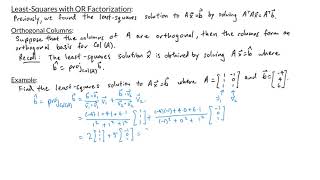 Least-Squares with QR Factorization:
Previously, we found the least-squares solution to Ax⃗=b⃗ by solving AᵀAx̂=Aᵀb⃗.
Orthogonal Columns:
Suppose that the columns of A are orthogonal, then the columns form an
orthogonal basis for Col(A).
Recall: The least-squares solution x̂ is obtained by solving Ax̂=b̂ where
b̂ = proj_Col(A) b⃗.
Example:
Find the least-squares solution to Ax⃗=b⃗ where A = [1 -1; 1 0; 1 1] and b⃗=[-4; 4; 6].
b̂ = proj_Col(A) b⃗ = (b⃗·v⃗₁)/(v⃗₁·v⃗₁) v⃗₁ + (b⃗·v⃗₂)/(v⃗₂·v⃗₂) v⃗₂ v⃗₁ v⃗₂
= ((-4)·1+4·1+6·1)/(1²+1²+1²) [1; 1; 1] + ((-4)(-1)+4·0+6·1)/((-1)²+0²+1²) [-1; 0; 1]
= 2[1; 1; 1] + 5[-1; 0; 1] =